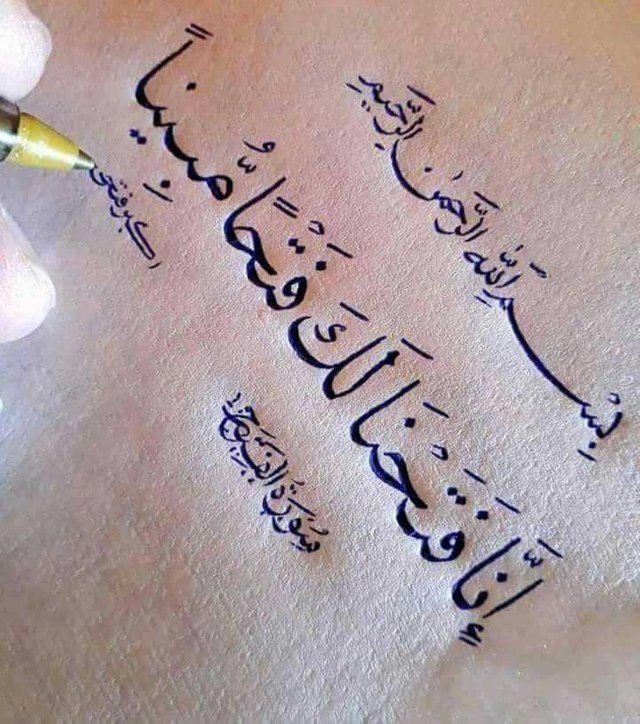 بِسْمِ اللَّهِ الرَّحْمٰنِ الرَّحِيمِ
إِنَّا فَتَحْنَا لَكَ فَتْحًا مُّبِينًا
سُورَةُ الفتح
اكبر فتحي